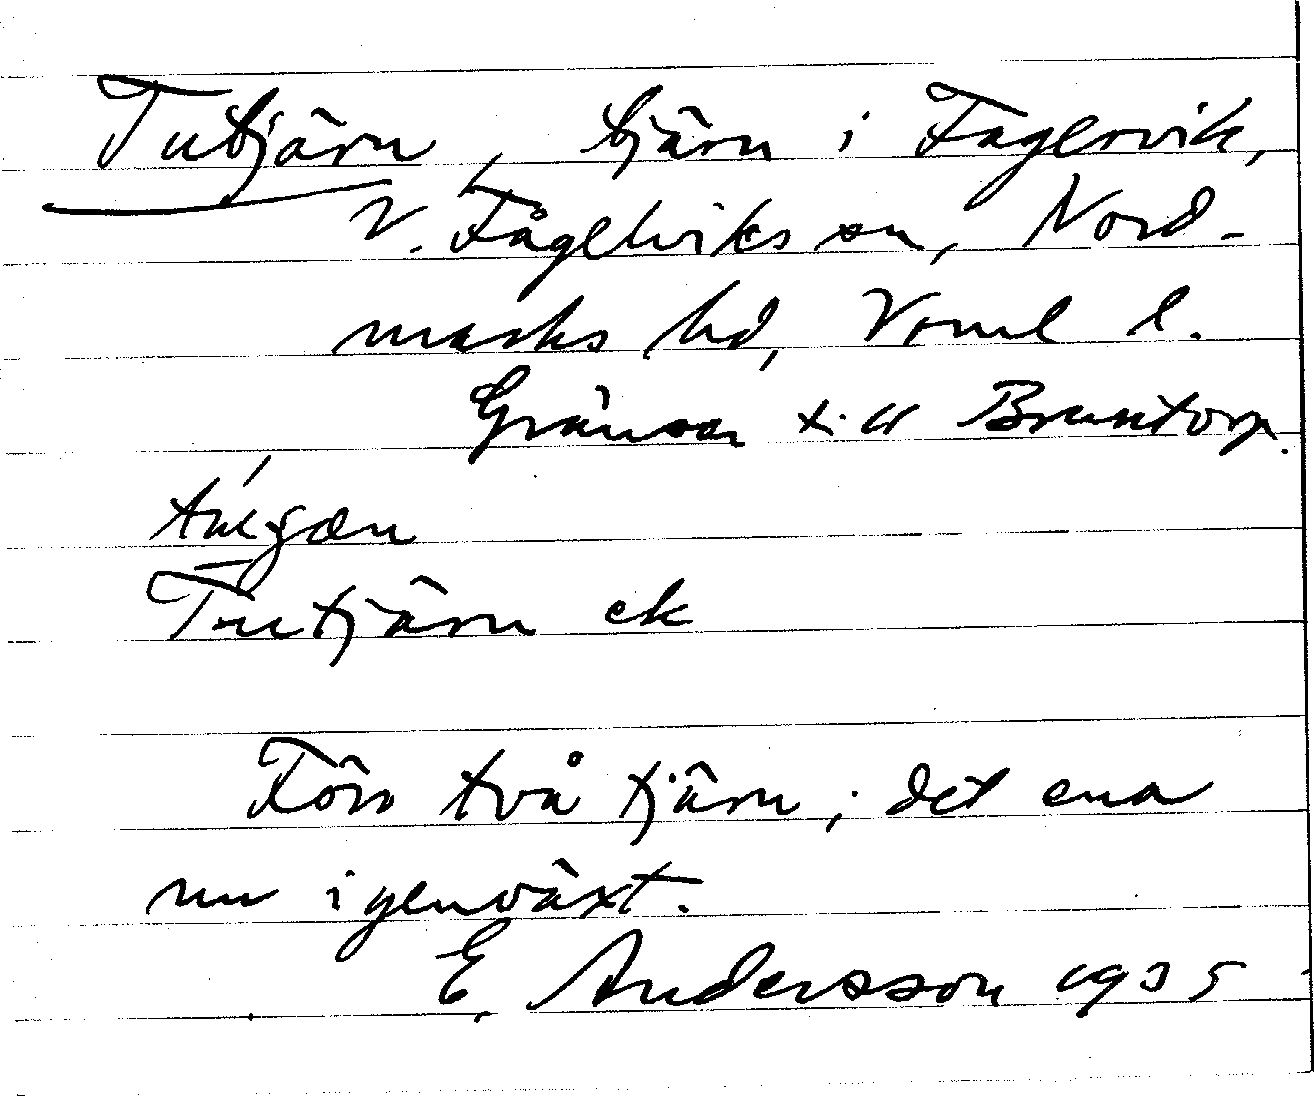 Tutjärn, tjärn i Fagervik,
V. Fågelviks sn, Nord-
marks hd, Vrml l.
Gränsar till Bruntorp.
Tutjärn ek
Förr två tjärn; det ena
nu igenväxt.
E. Andersson 1935